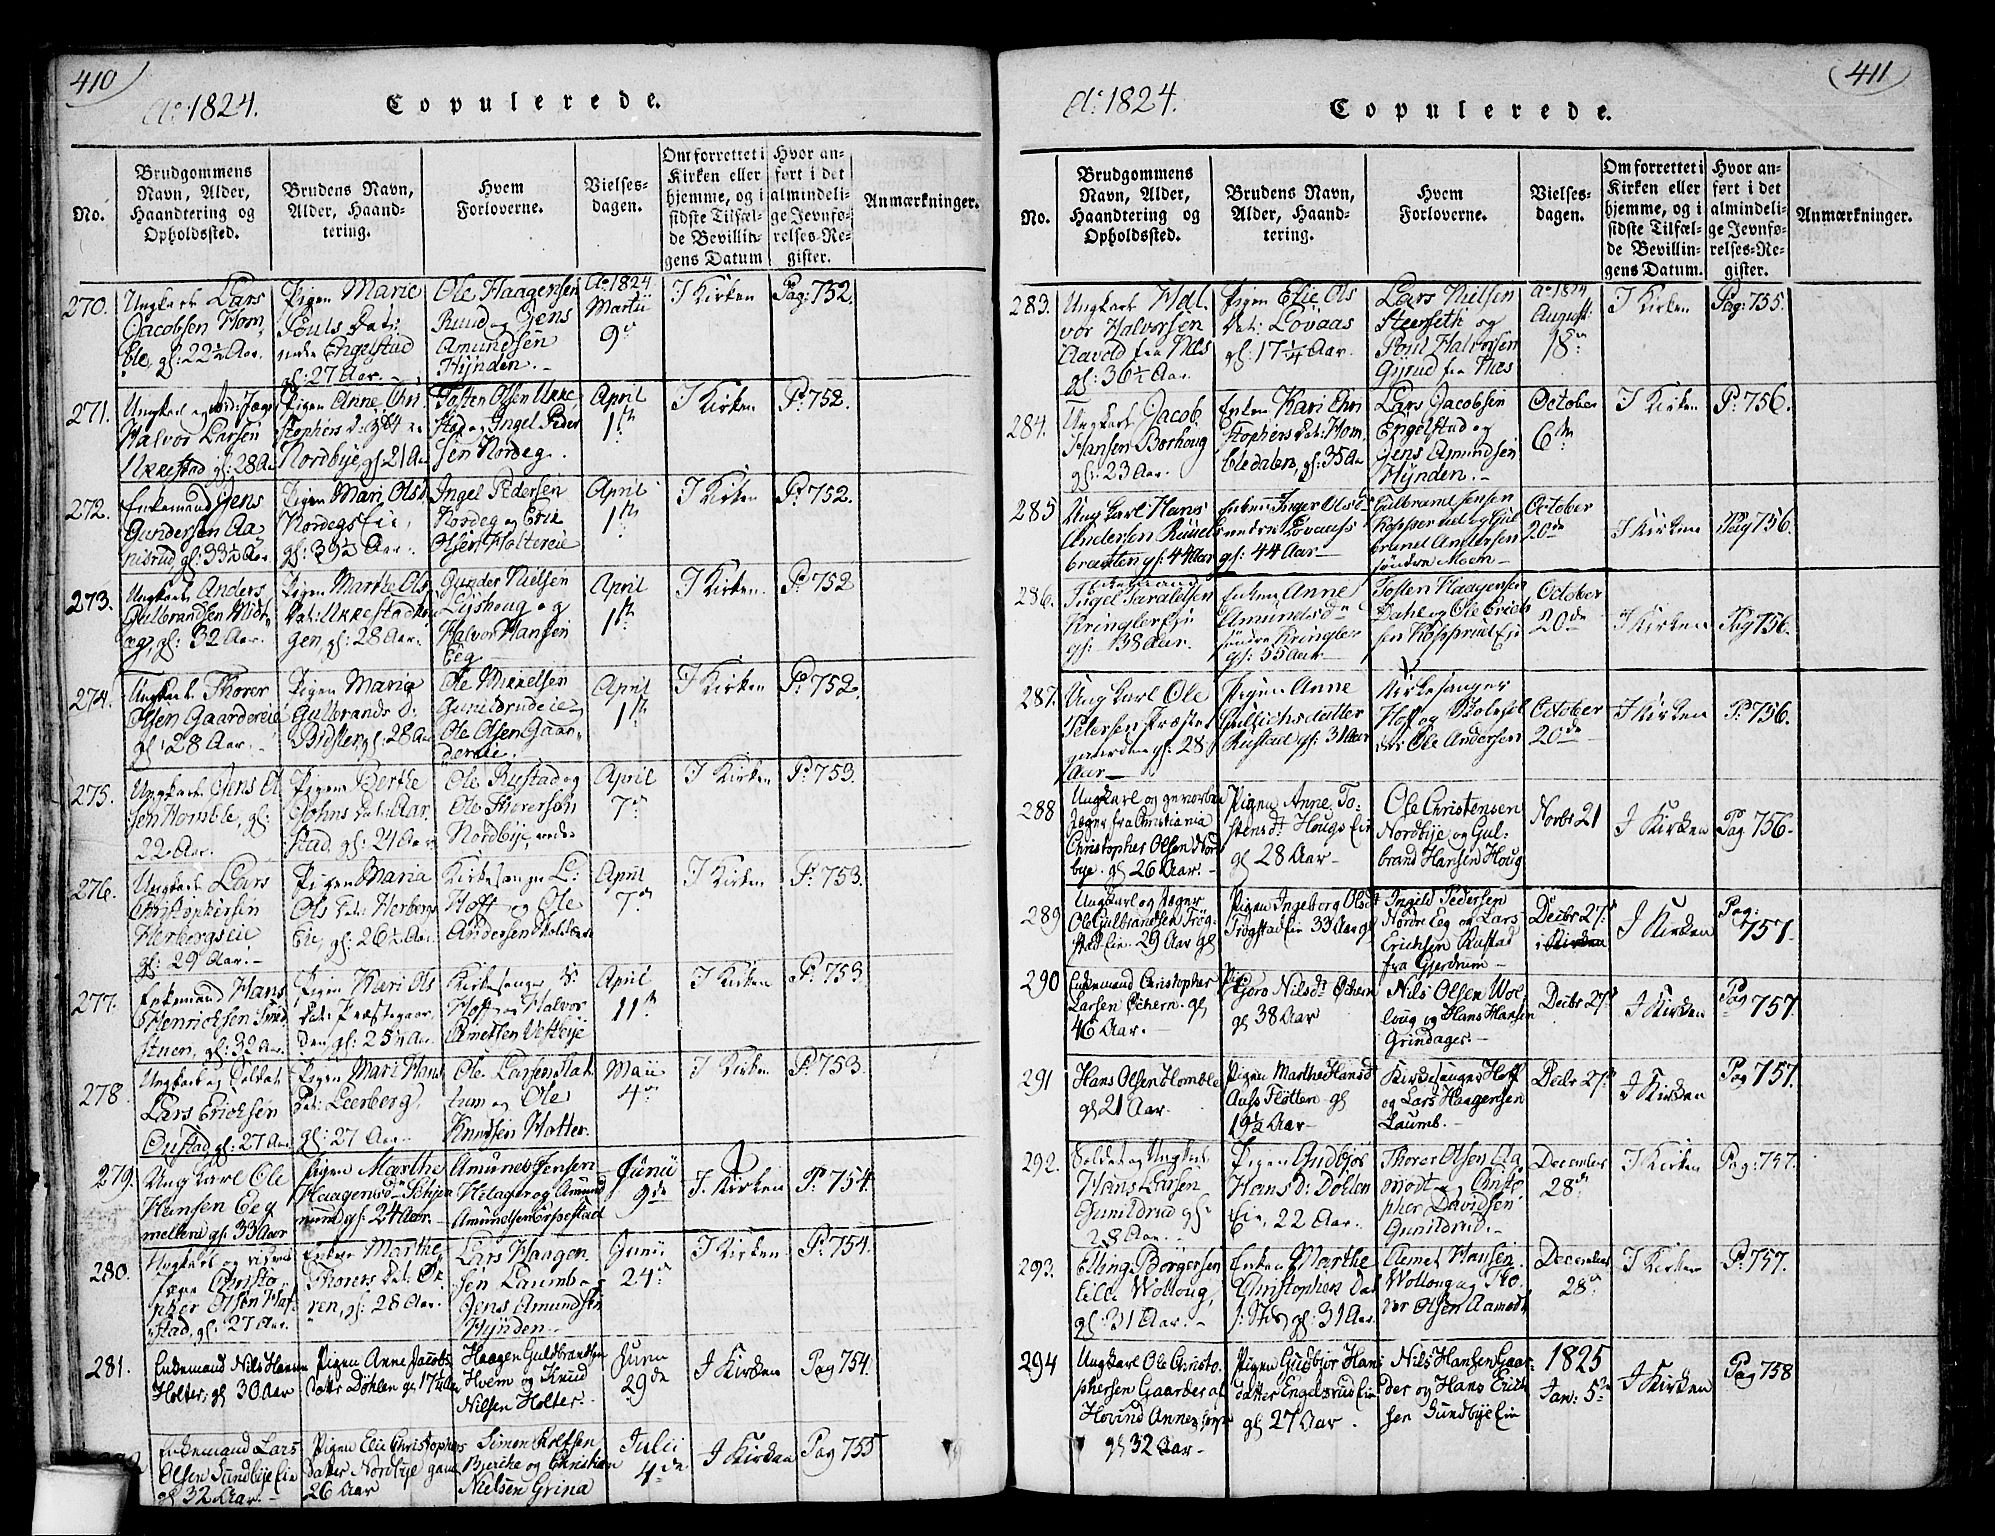 410
Ao: 1824.
Copulerede.
No.
Brudgommens
Navn, Alder,
Haandtering og
Opholdssted.
Brudens Navn,
Alder, Haand-
tering.
Hvem
Forloverne.
Vielses-
dagen.
Om forrettet i
Kirken eller
hjemme, og i
sidste Tilfæl-
de Bevillin-
gens Datum
Hvor an-
ført i det
almindeli-
ge Jevnfø-
relses-Re-
gister.
Anmærkninger.
270.
Ungkarl Lars
Jacobsen Hom,
ble, gl: 22½ Aar.
Pigen Marie
Pouls Dat:
Engelstad
gl: 27 Aar.
Ole Haagensen
Ruud og Jens
Amundsen
Hÿnden.
Ao 1824
Martii
9de
I Kirken
Pag: 752.
271.
Halvor Larsen
Ukkestad gl: 28 Aar
Pigen Anne Chri
Nordbÿe gl 21 Aar
Tosten Olsen Ukke
stad og Ingel Peder
sen Nordeg.
April
1ste
I Kirken
P: 752.
272.
Enkemand Jens
Gundersen Aa,
nisrud, gl: 33½ Aar
Pigen Mari Ols D
Nordegs Eie,
gl: 39½ Aar.
Ingel Pedersen
Nordeg og Erik
Olsen Holtereie
April
1ste
I Kirken
P: 752.
273.
Ungkarl Anders
Gulbrandsen Nidr
eg, gl: 32 Aar.
Pigen Marthe Ols
Dat: Ukkestadha,
gen, gl: 28 Aar.
Gunder Nielsen
Lÿshoug og
Halvor Hansen
Eeg
April
1ste
I Kirken
P: 752
274.
Ungkarl Thorer
Olsen Gaardereie
gl: 28 Aar.
Pigen Maria
Gulbrands D:
Bidster, gl: 28 Aar
Ole Mikkelsen
Gunildrudeie
Ole Olsen Gaar,
dereie.
April
1ste
I Kirken
P: 752.
275.
Ungkarl Jens Ol
sen Homble, gl:
22 Aar.
Pigen Berthe
Johns Dat: Aar,
stad, gl: 24 Aar
Ole Rustad og
Ole Thorersen
Nordbÿe, nedre
April
7de
I Kirken
P: 753.
276.
Ungkarl Lars
Christophersen
Herbergseie
gl: 29 Aar.
Pigen Maria
Ols Dat: Herbergs
Eie, gl: 26½ Aar.
Kirkesanger
Hoff og Ole
Andersen
April
7de
I Kirken
P: 753.
277.
Enkemand Hans
Henricksen
stuen, gl: 32 Aar.
Pigen Kari Ols
Dat: Præstegaar,
den, gl: 25½ Aar.
Kirkesanger
Hoff og Halvor
Amundsen Vestbÿe
April
11te
I Kirken
P: 753
278.
Ungkarl og Soldat
Lars Ericksen
Onstad gl: 27 Aar
Pigen Mari Hans
Dat: Leerberg,
gl: 27 Aar.
Ole Larsen Kat,
lum og Ole
Knudsen Holter.
Maii
4de
I Kirken
P: 753.
279.
Ungkarl Ole
Hansen Eeg
mellem gl: 33 Aar
Pigen Marthe
Haagensd
gl: 24 Aar.
Amund Jensen
Hilager og Amund
Amundsen
Junii
9de
I. Kirken
P: 754.
280.
Christo
pher Olsen Haf,
stad, gl: 27 Aar.
Enken Marthe
Thorers Dat: Øk
ren, gl: 28 Aar.
Lars Haagen
sen Laumb og
Jens Amundsen
Hÿnden
Junii
24de
I Kirken
P: 754.
281.
Enkemand Nils Hansen
Holter, gl 30 Aar
Pigen Anne Jacobs
datter Döhlen gl 17½ Aar
Haagen Guldbrandsen
Hvem og Knud
Nilsen Holter.
Junii
29de
I Kirken
Pag 754.
Enkemand Lars
Olsen Sundbÿe Eie
gl 32 Aar.
Pigen Elie Christophers
datter Nordbÿe
26 Aar
Simen Rolfsen
Bierche og Christian
Nielsen Grina
Julii
4de
I Kirken
Pag 755
411
Ao: 1824.
Copulerede.
No.
Brudgommens
Navn, Alder,
Haandtering og
Opholdssted.
Brudens Navn,
Alder, Haand-
tering.
Hvem
Forloverne.
Vielses-
dagen.
Om forrettet i
Kirken eller
hjemme, og i
sidste Tilfæl-
de Bevillin-
gens Datum.
Hvor an-
ført i det
almindeli-
ge Jevnfø-
relses-Re-
gister.
Anmærkninger.
283.
Ungkarl Hal
vor Halvorsen
Aavold fra Næs
gl: 36½ Aar.
Pigen Elie Ols
Dat: Lövaas
gl: 17¼ Aar.
Lars Nielsen
Steerseth og
Poul Halvorsen
Gÿrud fra Næs
Ao 1824
August:
18de
I Kirken
Pag: 755.
284.
Ungkarl Jacob
Hansen Borhoug
gl: 23 Aar.
Enken Kari Chri
stophers Dat: Hom,
bledalen, gl: 35 Aar
Lars Jacobsen
Engelstad og
Jens Amundsen
Hÿnden.
October
6te
I Kirken
P: 756.
285
Ungkarl Hans
Andersen
gl: 44 Aar
Enken Inger Olsd
nedre Lövaas
gl: 44 Aar
Gulbrand Jensen
Kopperud og Gul
brand Andersen
söndre Moen
October
20de
I Kirken
Pag 756.
286.
Enkemand
Ingel Taraldsen
Kringlereje
gl: 38 Aar.
Enken Anne
Amundsd
söndre Kringler
gl: 55 Aar
Tosten Haagensen
Dahl og Ole Erich
sen Kopperud Eje
October
20de
I Kirken
Pag 756.
287.
Ungkarl Ole
Petersen Præste
gaarden gl: 28
Aar
Pigen Anne
datter
Rustad gl: 31 Aar
Kirkesanger
Hoff og
Ole Andersen
October
20de
I Kirken
P: 756.
288
Ungkarl og geworben
Jæger fra Christiania
Christopher Olsen Nord
bye. gl 26 Aar.
Pigen Anne To-
stensdt Hougs Eie
gl 28 Aar
Ole Christensen
Nordbÿe og Gul-
brand Hansen Houg
Novbr 21
I Kirken
Pag 756
289
Ungkarl og Jæger
Ole Gulbrandsen Trög
stad Eie. 29 Aar gl
Pigen Ingeborg Olsdt
Trögstad Eie 33 Aar gl
Ingeld Pedersen
Nordre Eeg og Lars
Erichsen Rustad
fra Gjerdrum
Decbr 27de
i Kirken
I Kirken
Pag:
757
290
Enkemand Christopher
Larsen Öchern. gl
46 Aar.
Pig:
Goro Nilsdt Öchern
gl 38 Aar
Nils Olsen Wol-
loug og Hans Hansen
Grindager.
Decbr 27de
I Kirken
Pag
757.
291
Hans Olsen Homble
gl 21 Aar.
Pigen Marthe Hansd
Aass Flötten gl
19½ Aar
Kirkesanger Hoff
og Lars Haagensen
Laumb.
Decbr 27de
I Kirken
Pag 757.
292.
Soldat og Ungkarl
Hans Larsen
Gunildrud gl:
28 Aar.
Pigen Gudbjör
Hans D: Döhlen
Eie, 22 Aar.
Thorer Olsen Aa
modt og Christo
pher Davidsen
Gunildrud.
December
28de
I Kirken
Pag: 757.
293.
Elling Börgersen
Eie: Wolloug,
gl: 31 Aar.
Enken Marthe
Christophers Dat
gl: 31 Aar.
Aamet Hansen
Wolloug og Tho
rer Olsen Aamodt
December
28de
I Kirken
P: 757.
294
Ungkarl Ole Christo,
phersen Gaarder af
Hovind Annex
gl 32 Aar
Pigen Gudbjor Hans
datter Engelsrud Eie
gl 27 Aar.
Nils Hansen Gaar-
der og Hans Erich
sen Sundbÿe Eie
1825
Jan: 5te
I Kirken
Pag 758